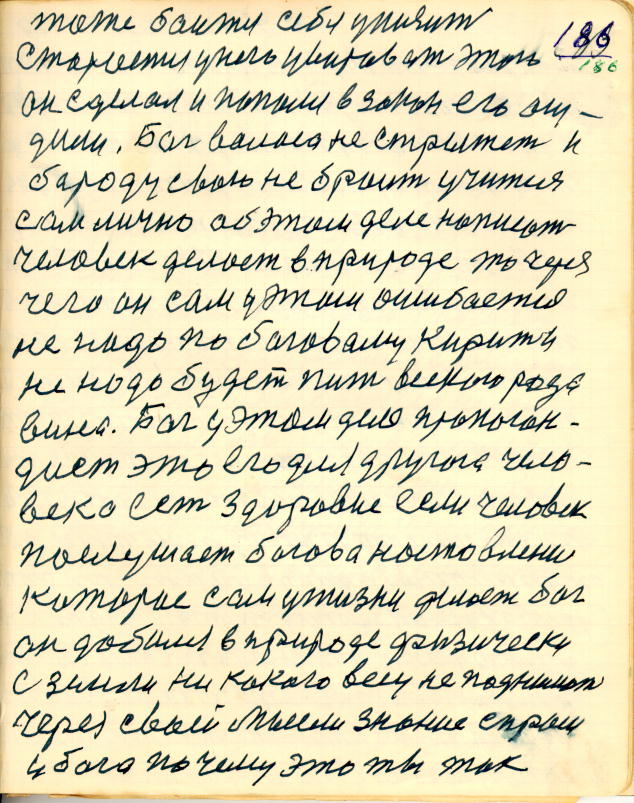 тоже боится себя унизит
186
186
Старости унего убироват этого
он сделал и попал в закон его асу-
дили. Бог волоса не стрижет и
бароду свою не броит учится
сам лично обэтом деле написат
человек делает в природе то через
чего он сам у этом ошибается
не надо по боговому Курить и
не надо будет пит всякого рода
вина. Бог у этом дела пропоган-
дист это его для другога чело-
века ест здоровие если человек
послушает богова наставлени
которое сам у жизни делает бог
он добился в природе физически
с земли ни какого весу не поднимат
через свое мысли знание спроси
у бога почему это ты так